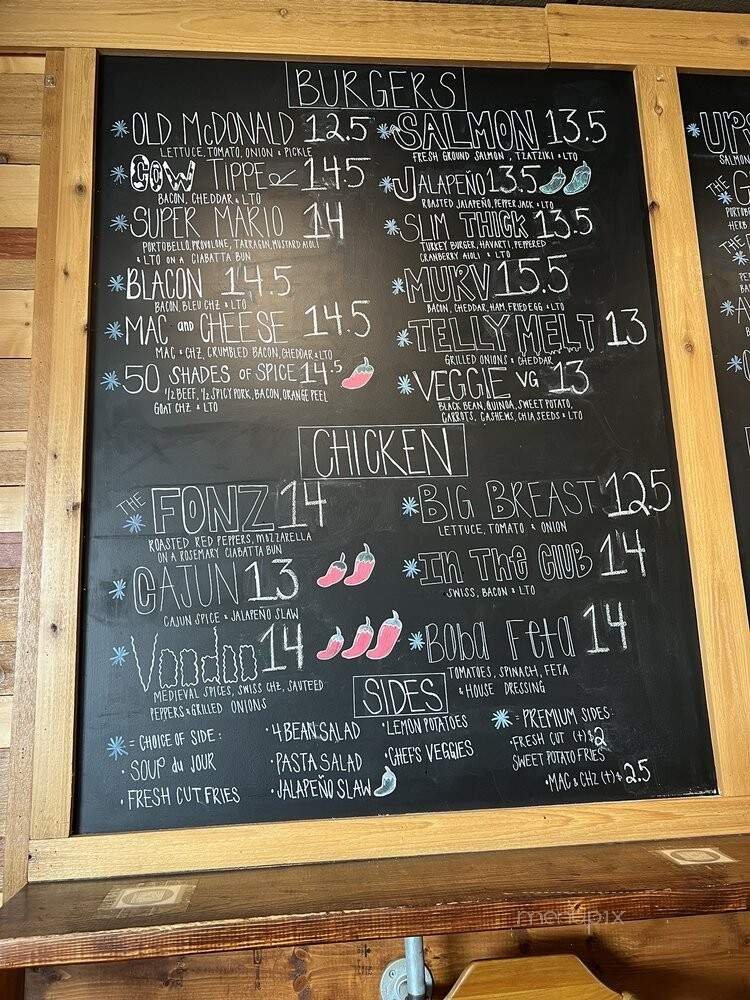 BURGERS
OLD McDONALD 12.5
LETTUCE, TOMATO, ONION & PICKLE
COW TIPPER 14.5
BACON, CHEDDAR & LTO
SUPER MARIO 14
PORTOBELLO, PROVLONE, TARRAGON, MUSTARD AIOLI
& LTO ON A CIABATTA BUN
BLACON 14.5
BACON, BLEU CHZ & LTO
MAC and CHEESE 14.5
MAC & CHZ, CRUMBLED BACON, CHEDDAR & LTO
50 SHADES OF SPICE 14.5
1/2 BEEF, 1/2 SPICY PORK, BACON, ORANGE PEEL
GOAT CHZ & LTO
SALMON 13.5
FRESH GROUND SALMON, TZATZIKI & LTO
JALAPEÑO 13.5
ROASTED JALAPEÑO, PEPPER JACK & LTO
SLIM THICK 13.5
TURKEY BURGER, HAVARTI, PEPPERED
CRANBERRY AIOLI & LTO
MURV 15.5
BACON, CHEDDAR, HAM, FRIED EGG & LTO
TELLY MELT 13
GRILLED ONIONS & CHEDDAR
VEGGIE VG 13
BLACK BEAN, QUINOA, SWEET POTATO,
CARROTS, CASHEWS, CHIA SEEDS & LTO
CHICKEN
THE FONZ 14
ROASTED RED PEPPERS, MOZZARELLA
ON A ROSEMARY CIABATTA BUN
CAJUN 13
CAJUN SPICE & JALAPEÑO SLAW
Voodoo 14
MEDIEVAL SPICES, SWISS CHZ, SAUTEED
PEPPERS & GRILLED ONIONS
BIG BREAST 12.5
LETTUCE, TOMATO & ONION
In The CluB 14
SWISS, BACON & LTO
Boba Feta 14
TOMATOES, SPINACH, FETA
& HOUSE DRESSING
SIDES
= CHOICE OF SIDE:
• SOUP du JOUR
• FRESH CUT FRIES
• 4 BEAN SALAD
• PASTA SALAD
• JALAPEÑO SLAW
• LEMON POTATOES
• CHEF'S VEGGIES
= PREMIUM SIDES:
• FRESH CUT (+) $2
SWEET POTATO FRIES
• MAC & CHZ (+) $ 2.5
SALMON
THE
THE
menupix